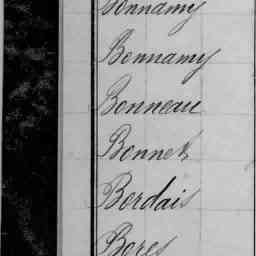 Bonnamy
Bonnamy
Bonneau
Bonnet
Bordais
Bores